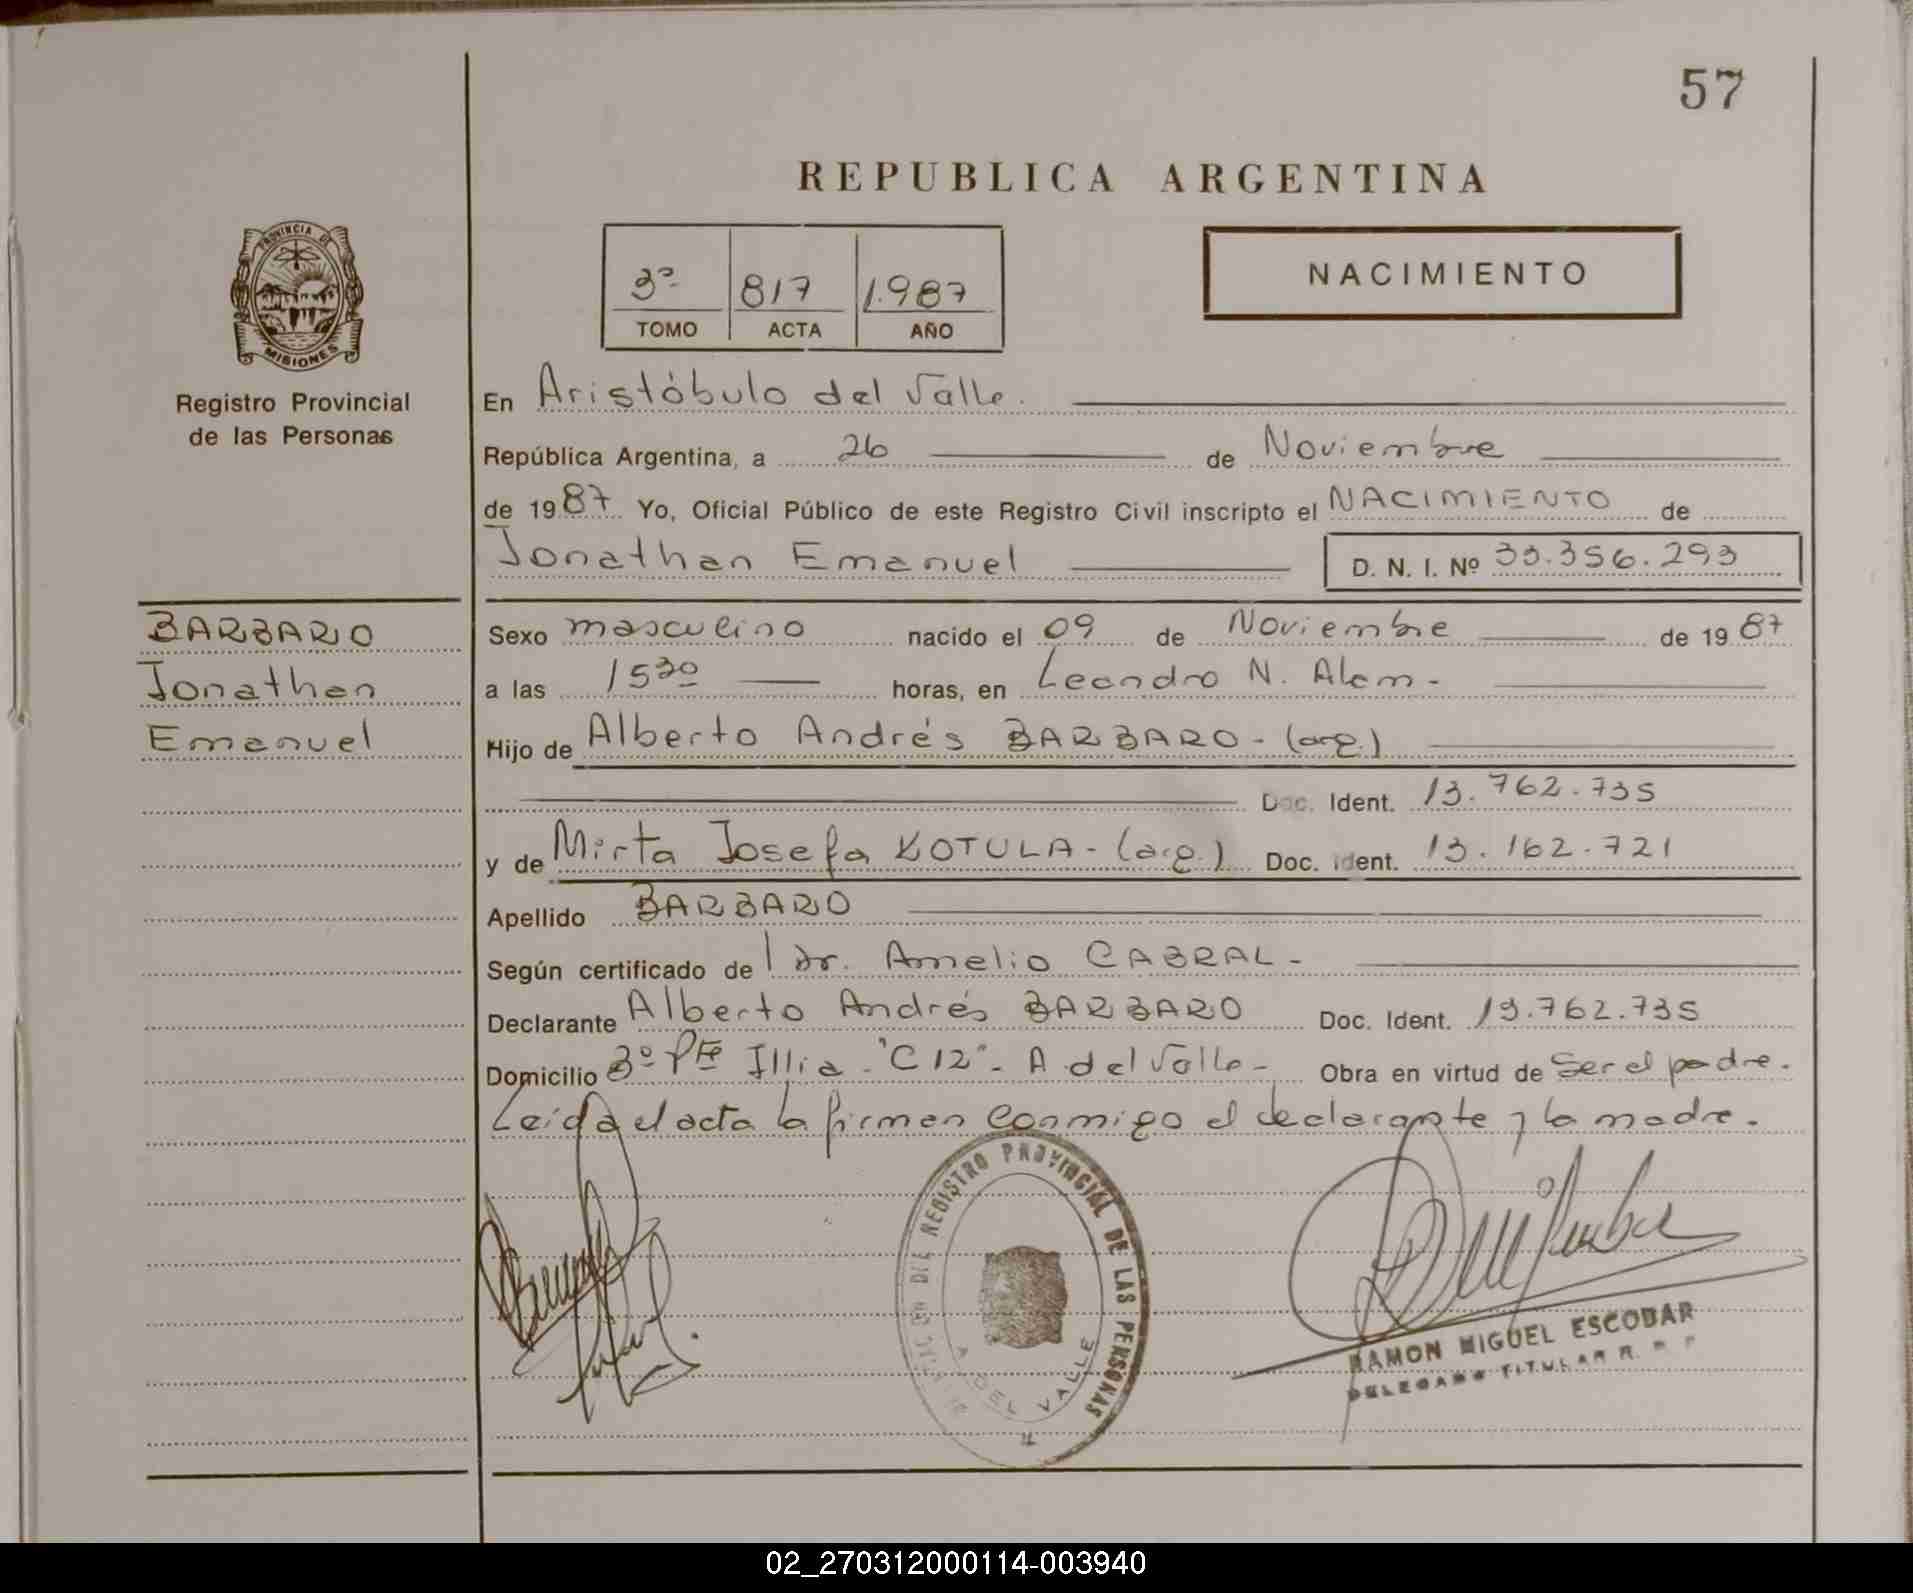 57
REPUBLICA ARGENTINA
PROVINCIA DE
MISIONES
Registro Provincial
de las Personas
3º 817 1.987
TOMO ACTA AÑO
NACIMIENTO
En Aristóbulo del Valle.
República Argentina, a 26 de Noviembre
de 1987 Yo, Oficial Público de este Registro Civil inscripto el NACIMIENTO de
Jonathan Emanuel D. N. I. Nº 33.356.293
BARBARO
Jonathan
Emanuel
Sexo masculino nacido el 09 de Noviembre de 1987
a las 1530 horas, en Leandro N. Alem -
Hijo de Alberto Andrés BARBARO - (arg.)
Doc. Ident. 13.762.735
y de Mirta Josefa KOTULA - (arg.) Doc. Ident. 13.162.721
Apellido BARBARO
Según certificado de Dr. Amelio CABRAL -
Declarante Alberto Andrés BARBARO Doc. Ident. 13.762.735
Domicilio 3º Pte Illia - "C 12" - A del Valle - Obra en virtud de Ser el padre.
Leída el acta la firman conmigo el declarante y la madre.
DEL REGISTRO PROVINCIAL DE LAS PERSONAS
A. DEL VALLE
RAMON MIGUEL ESCOBAR
DELEGADO TITULAR R. P. P.
02_270312000114-003940